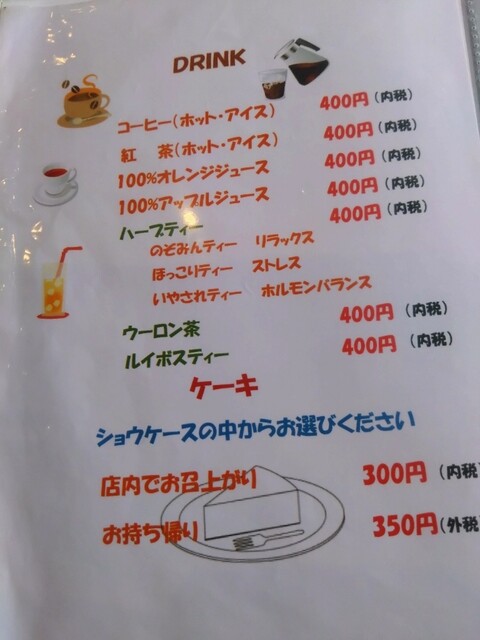 DRINK
コーヒー(ホット・アイス) 400円(内税)
紅 茶(ホット・アイス) 400円(内税)
100%オレンジジュース 400円(内税)
100%アップルジュース 400円(内税)
ハーブティー 400円(内税)
のぞみんティー リラックス
ほっこりティー ストレス
いやされティー ホルモンバランス
ウーロン茶 400円(内税)
ルイボスティー 400円(内税)
ケーキ
ショウケースの中からお選びください
店内でお召上がり 300円(内税)
お持ち帰り 350円(外税)